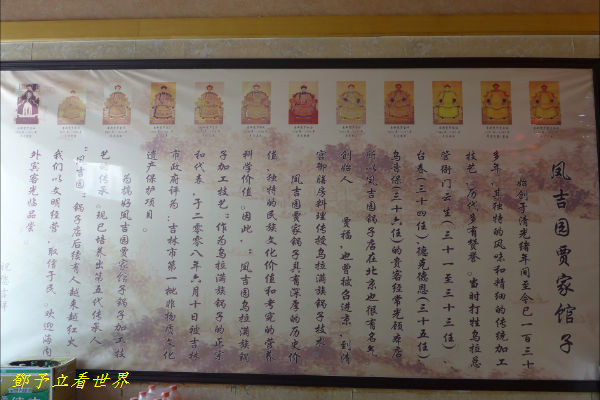 凤吉园贾家馆子
始创于清光绪年间至今已一百三十
多年，其独特的风味和精细的传统加工
技艺，历代多有赞誉。当时打牲乌拉总
管衙门云生(三十一至三十三任)、
台春(三十四任)、德克德恩(三十五任)
乌音保(三十六任)的贵客经常光顾本店
所以凤吉园锅子店在北京也很有名气
创始人 贾福，也曾被召进京，到清
宫御膳房料理传授乌拉满族锅子技术
凤吉园贾家锅子具有深厚的历史价
值、独特的民族文化价值和考究的营养
科学价值。因此，凤吉园乌拉满族锅
子加工技艺：作为乌拉满族锅子的正宗
和代表，于二零零八年六月十日被吉林
市政府评为：吉林市第一批非物质文化
遗产保护项目。
为搞好凤吉园贾家馆子锅子加工技
艺 传承。现已培养出第五代传承人
凤吉园：锅子店后续有人越来越红火
我们以文明经营，取信于民。欢迎海内
外宾客光临品尝
祝您吉祥
鄭予立看世界